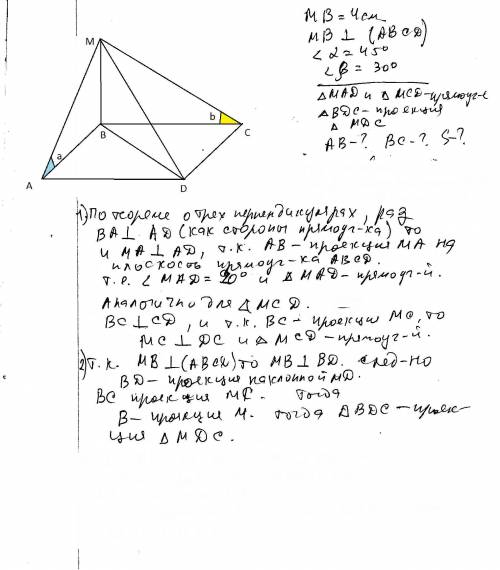 MB = 4см
MB ⊥ (ABCD)
∠α = 45°
∠β = 30°
ΔMAD и ΔMCD - прямоуг-е
ΔBDC - проекция
ΔMDC
AB - ? BC - ? S - ?
M
b
B
C
a
A
D
1) По теореме о трех перпендикулярах, раз
BA ⊥ AD (как стороны прямоуг-ка) то
и MA ⊥ AD, т.к. AB - проекция MA на
плоскость прямоуг-ка ABCD.
т.е. ∠MAD = 90° и ΔMAD - прямоуг-й.
Аналогично для ΔMCD.
BC ⊥ CD, и т.к. BC - проекция MC, то
MC ⊥ DC и ΔMCD - прямоуг-й.
2) т.к. MB ⊥ (ABCD) то MB ⊥ BD. след-но
BD - проекция наклонной MD.
BC проекция MC. Тогда
B - проекция M. тогда ΔBDC - проек-
ция ΔMDC.